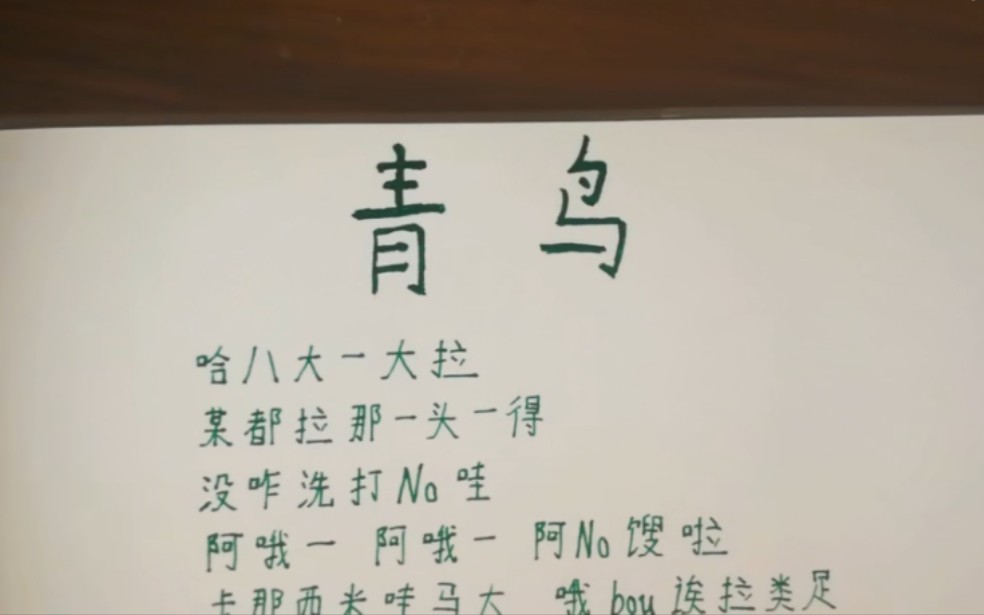 青鸟
哈八大一大拉
某都拉那一头一得
没咋洗打No哇
阿哦一 阿哦一 阿No馊啦
卡那西米哇马大 哦bou诶拉类足